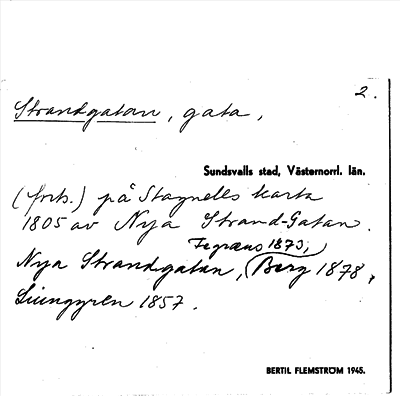 2.
Strandgatan, gata,
Sundsvalls stad, Västernorrl. län.
(forts.) på Stagnells karta
1805 av Nya Strand-Gatan.
Tegræus 1873,
Nya Strandgatan, Berg 1878,
Ljunggren 1857.
BERTIL FLEMSTRÖM 1945.